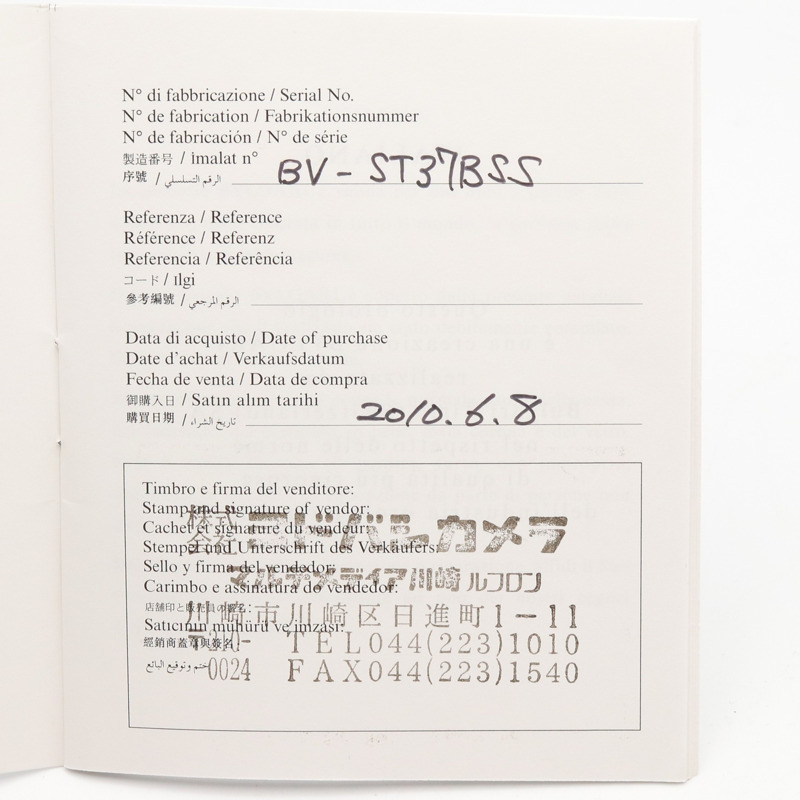 N° di fabbricazione / Serial No.
N° de fabrication / Fabrikationsnummer
N° de fabricación / N° de série
製造番号 / imalat n°
序號 / الرقم التسلسلي BV-ST37BSS
Referenza / Reference
Référence / Referenz
Referencia / Referência
コード / ılgi
參考編號 / الرقم المرجعي
Data di acquisto / Date of purchase
Date d'achat / Verkaufsdatum
Fecha de venta / Data de compra
御購入日 / Satın alım tarihi
購買日期 / تاريخ الشراء 2010.6.8
Timbro e firma del venditore:
Stamp and signature of vendor:
Cachet et signature du vendeur:
Stempel und Unterschrift des Verkäufers:
Sello y firma del vendedor:
Carimbo e assinatura do vendedor:
店舗印と販売員の署名:
Satıcının mühürü ve imzası:
經銷商蓋章與簽名:
ختم وتوقيع البائع
株式会社 ヨドバシカメラ
マルチメディア川崎ルフロン
川崎市川崎区日進町1-11
〒210-0024 TEL044(223)1010
FAX044(223)1540